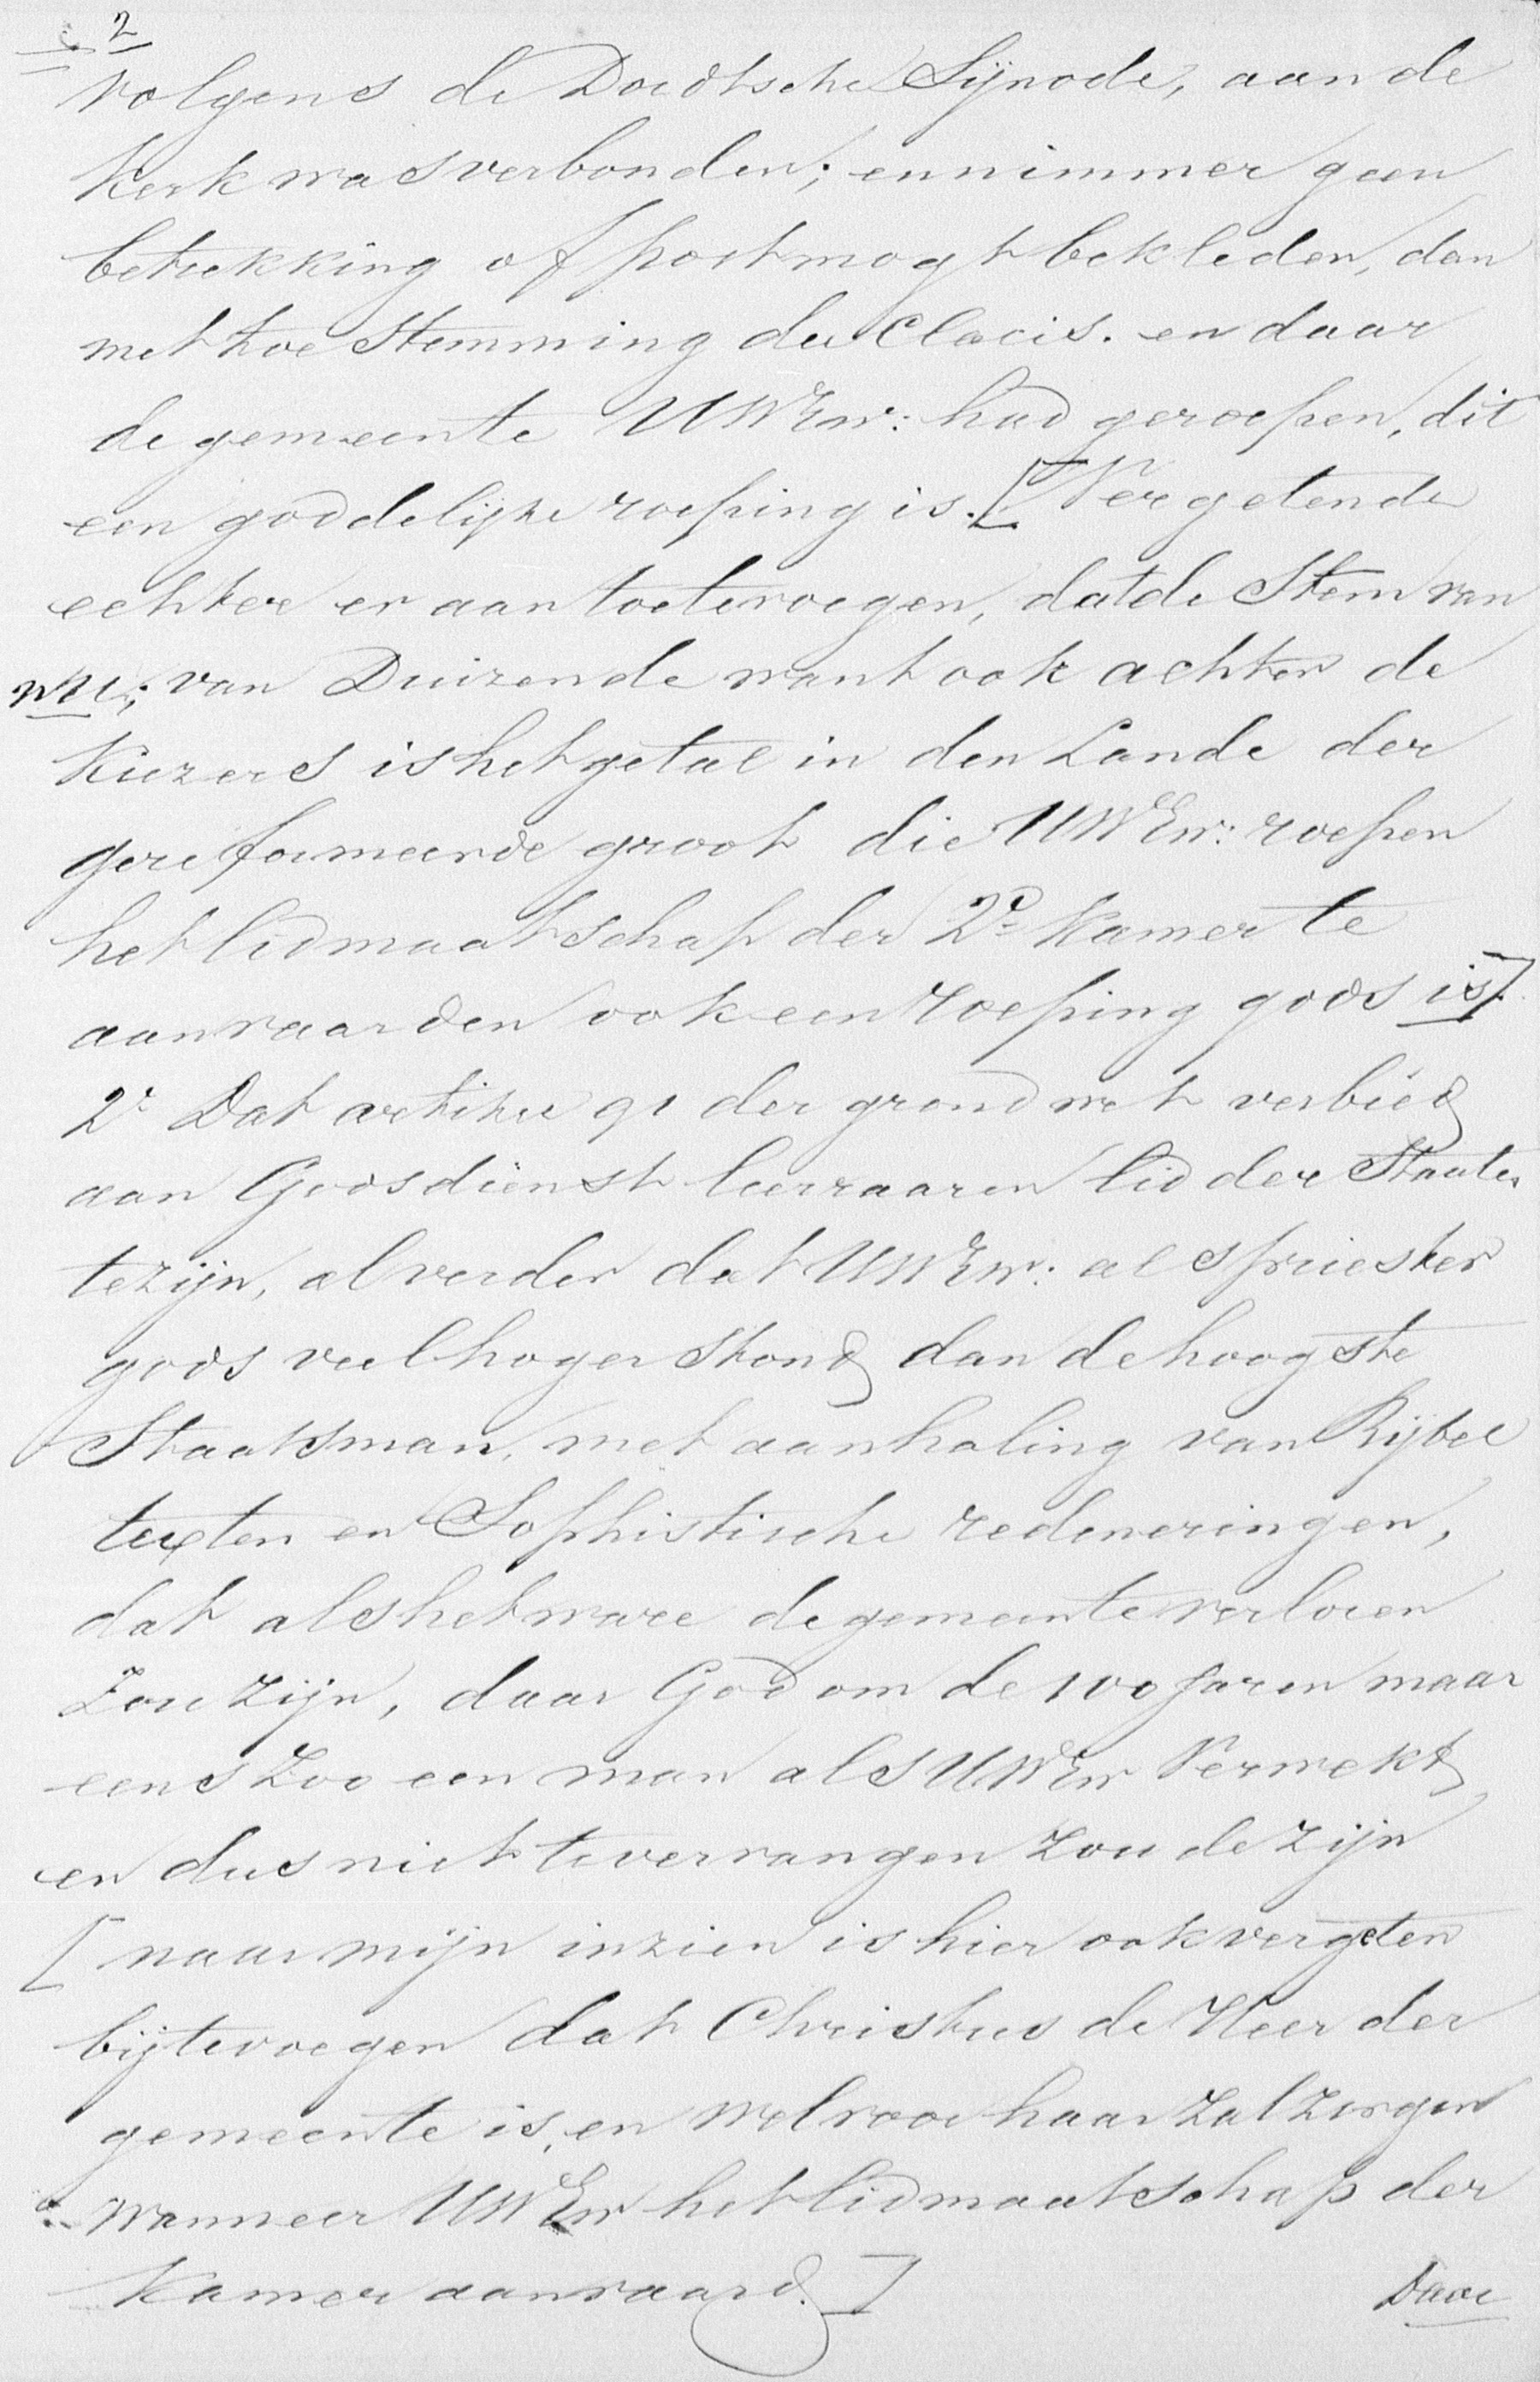 2
volgens de Dordtsche Sijnode, aan de
Kerk was verbonden; en nimmer geen
betrekking of post mogt bekleden, dan
met toe Stemming der Clacis. en daar
de gemeente UWEw: had geroepen, dit
een goddelijke roeping is. [Vergetende
echter er aan toetevoegen, dat de Stem van
van Duizende want ook achter de
Kiezers is het getal in den Lande der
gereformeerde groot die UWEw: roepen
het lidmaatschap der 2e Kamer te
aanvaarden ook een roeping gods is].
2e Dat artikel 91 der grondwet verbied
aan Godsdienst leeraaren lid der Staaten
te zijn, al verder dat UWEw: als priester
gods veel hoger Stond dan de hoogste
Staatsman, met aanhaling van Bijbel
texten en Sophistische redeneringen,
dat als het ware de gemeente verloren
Zou zijn, daar God om de 100 jaren maar
eens Zoo een man als UWEw Verwekt
en dus niet te vervangen Zoude zijn
[naar mijn inzien is hier ook vergeten
bijtevoegen dat Christus de Heer der
gemeente is, en wel voor haar Zal Zorgen
wanneer UWEw het lidmaatschap der
Kamer aanvaard.]
Daar